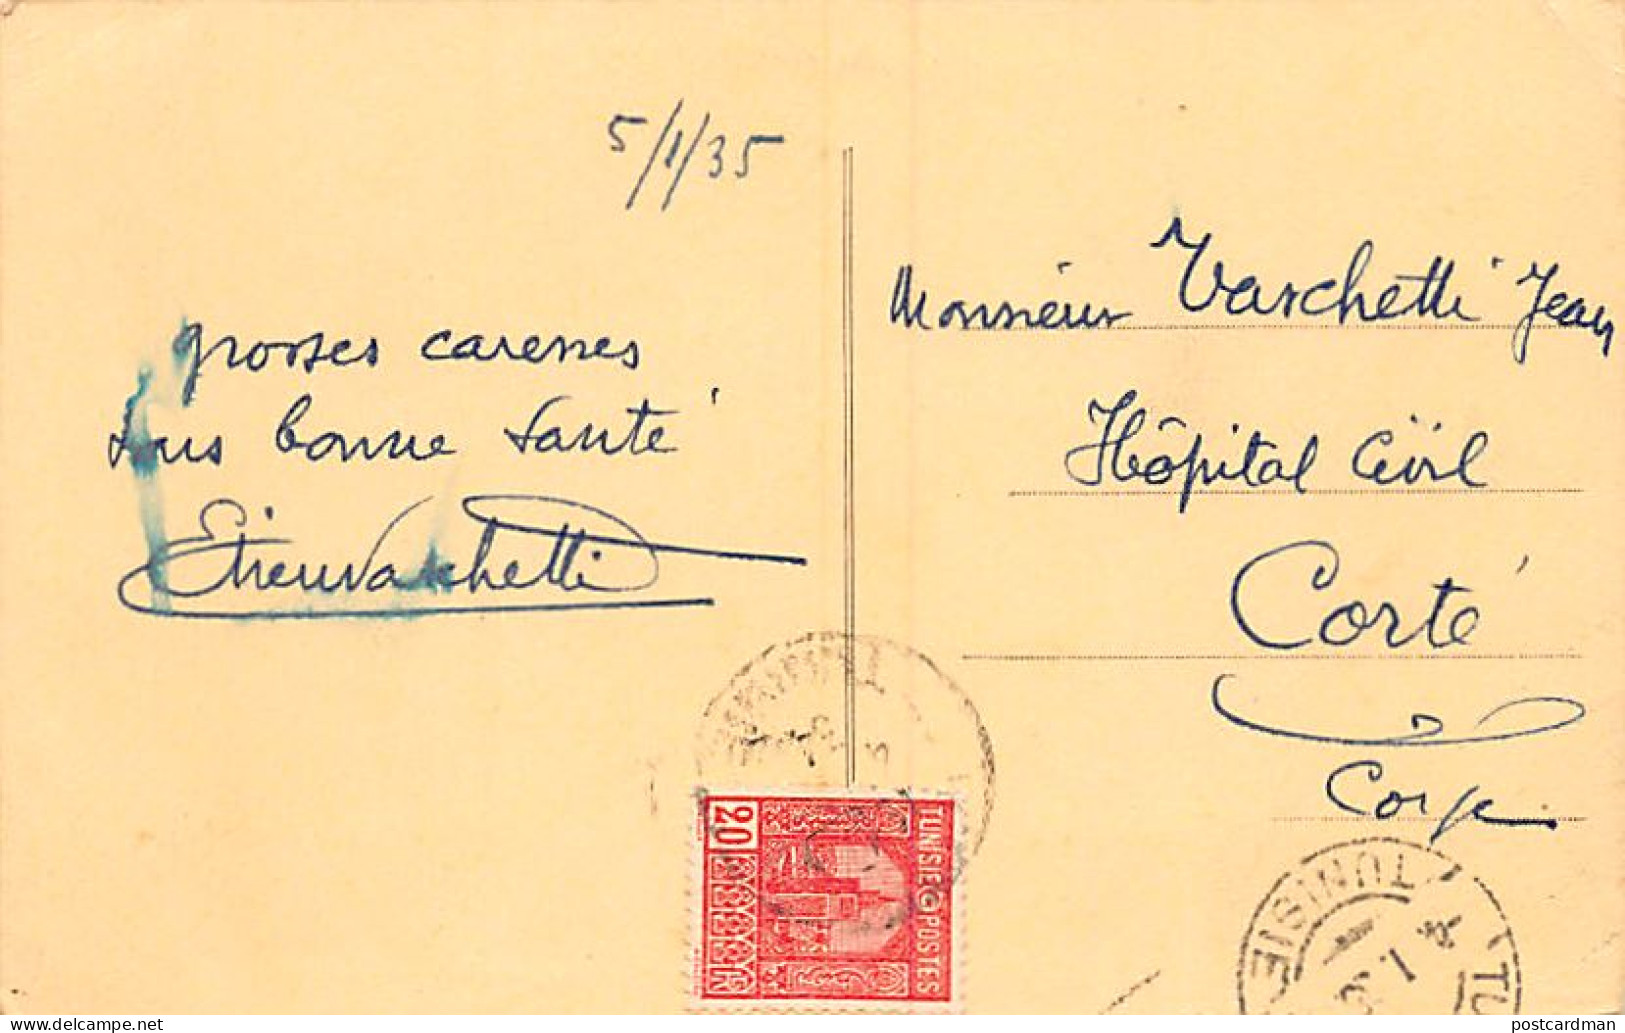 5/1/35
grosses caresses
sous bonne santé
Etienvaschetti
Monsieur Vaschetti Jean
Hôpital Civil
Corté
Corse
20
TUNISIE POSTES
TUNISIE
TU
postcardman